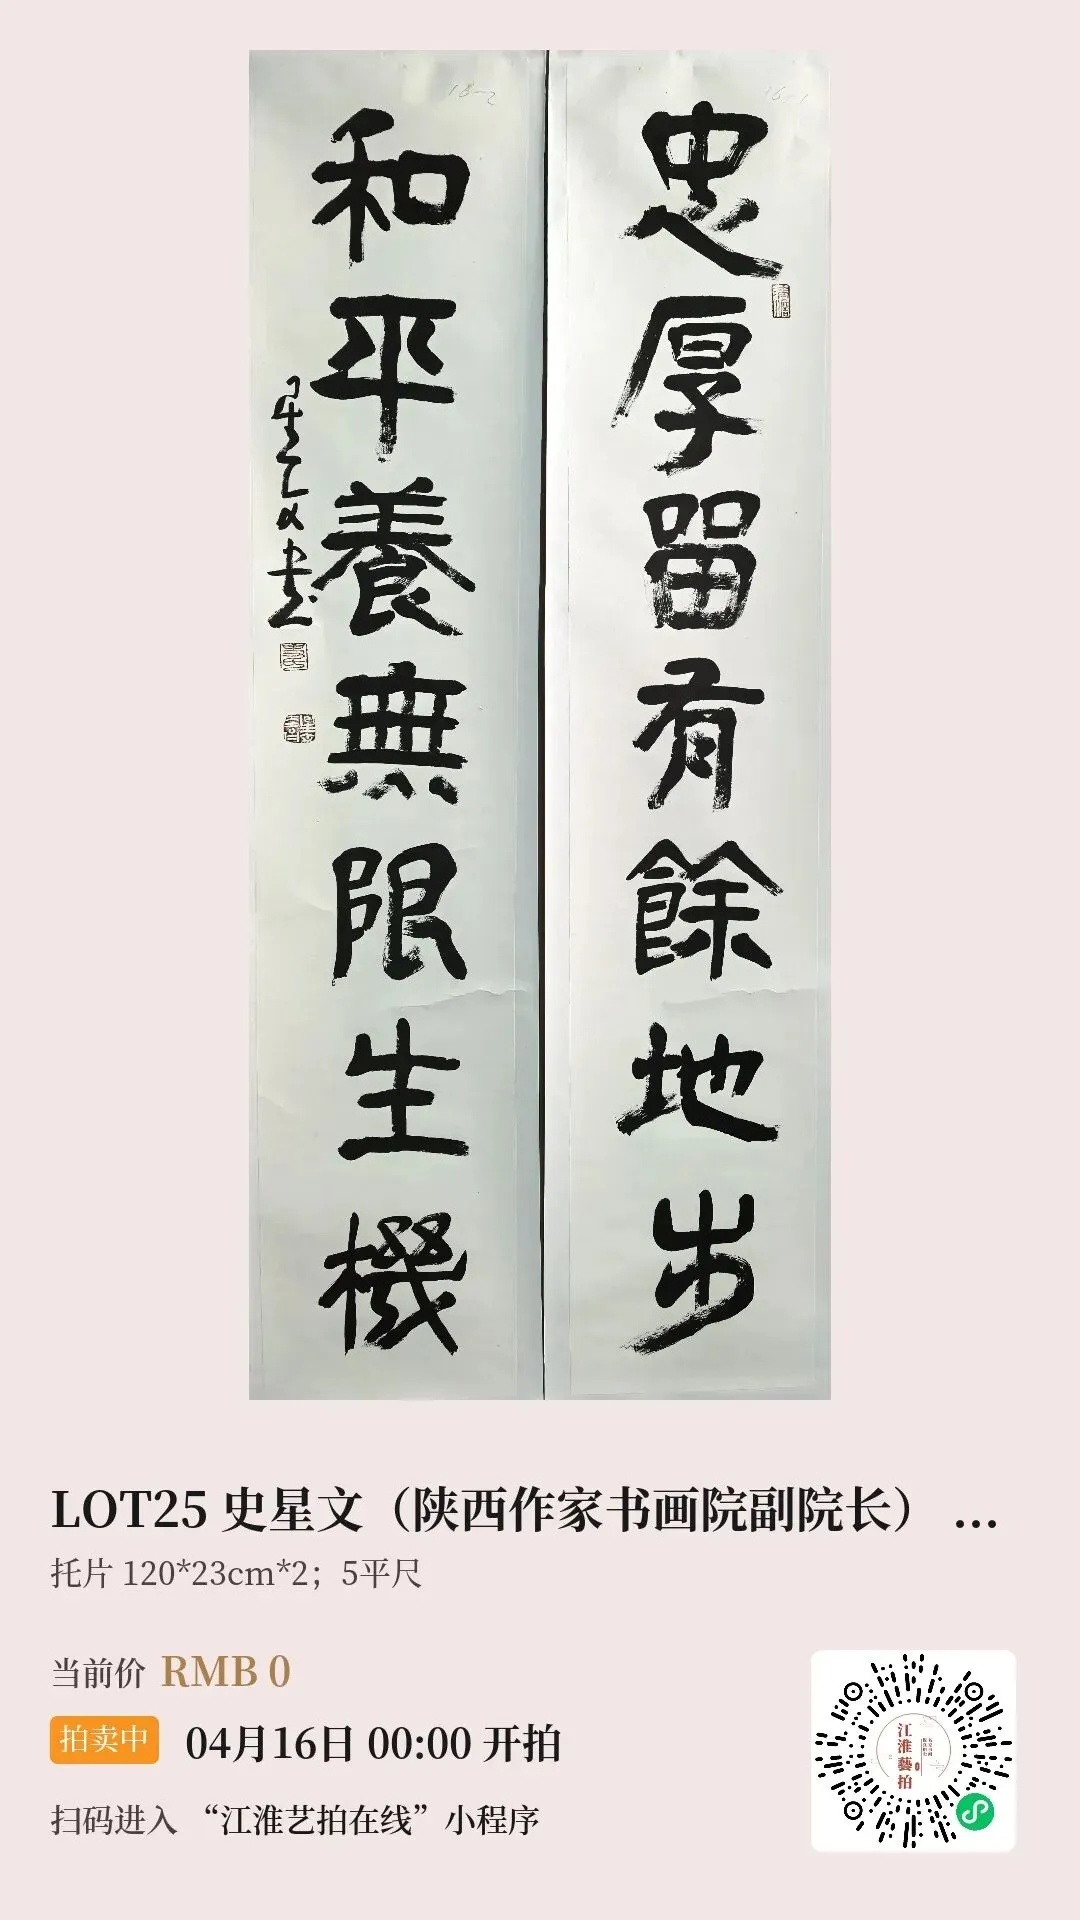 忠厚留有餘地步
和平養無限生機
星文书
16-1
18-2
LOT25 史星文（陕西作家书画院副院长） ...
托片 120*23cm*2；5平尺
当前价 RMB 0
拍卖中 04月16日 00:00 开拍
扫码进入 “江淮艺拍在线” 小程序
江淮藝拍